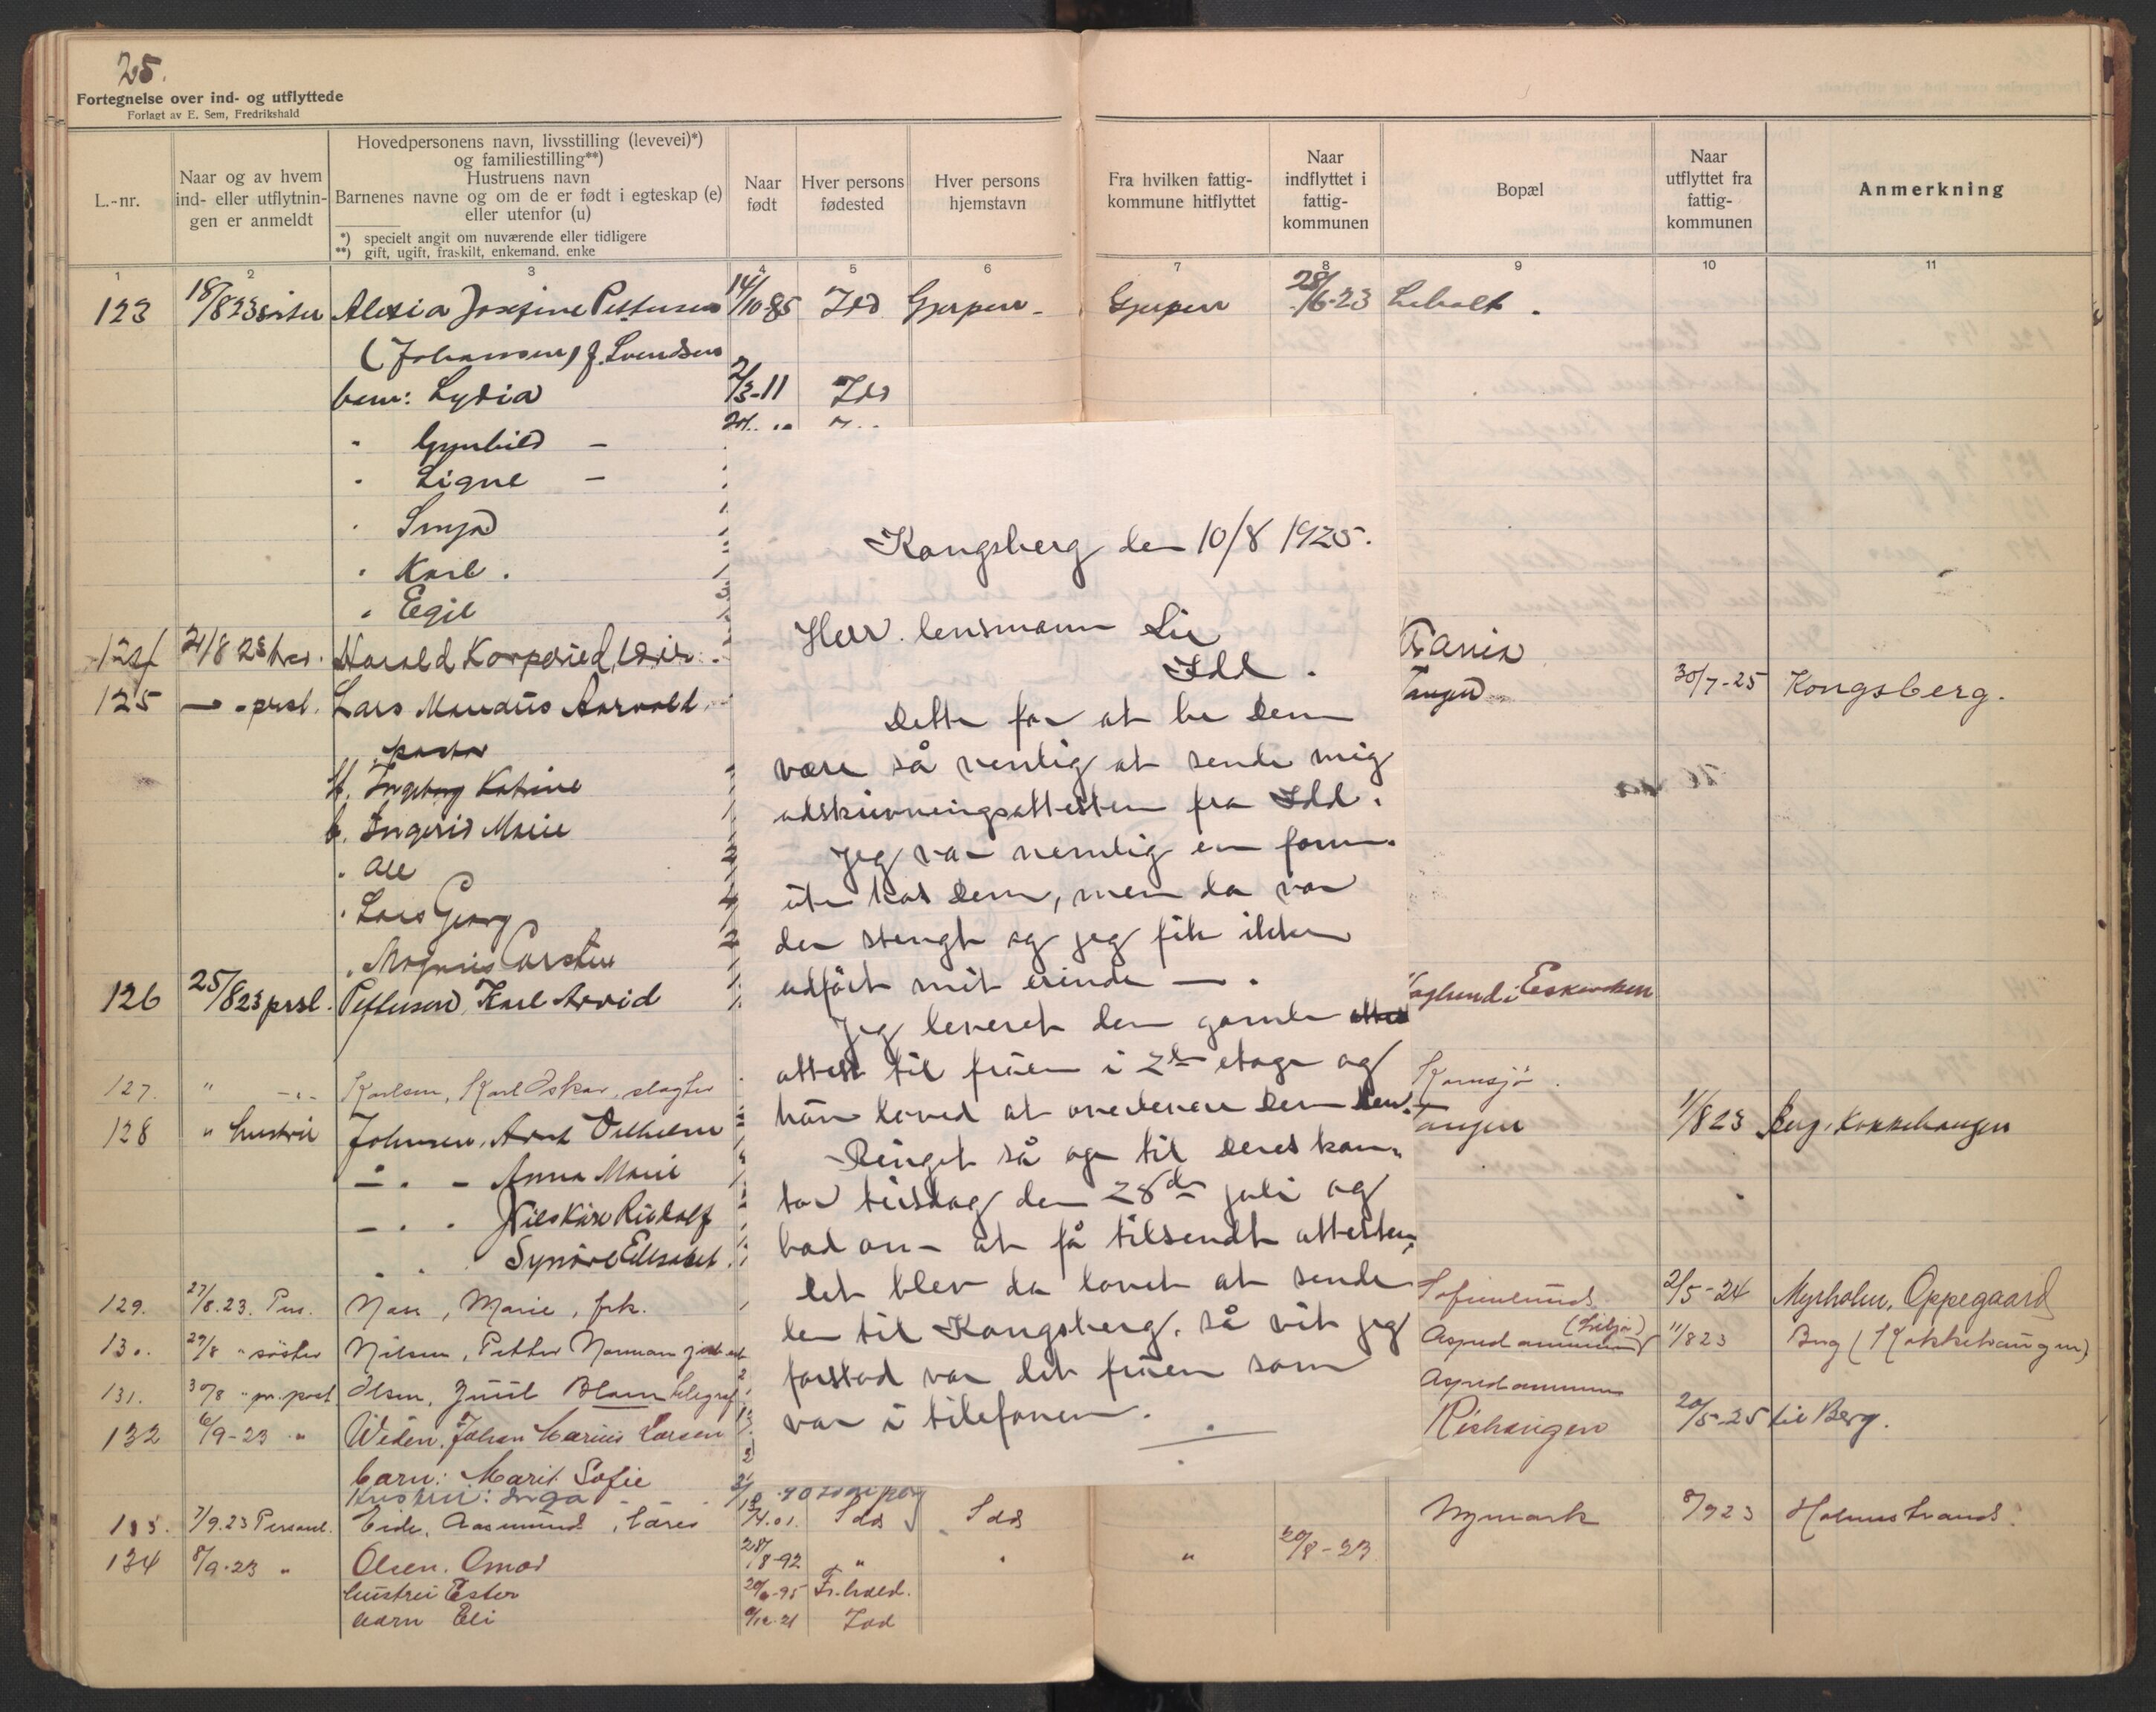 25.
Fortegnelse over ind- og utflyttede
Forlagt av E. Sem, Fredrikshald
L.-nr.
Naar og av hvem
ind- eller utflytnin-
gen er anmeldt
Hovedpersonens navn, livsstilling (levevei)*)
og familiestilling**)
Hustruens navn
Barnenes navne og om de er født i egteskap (e)
eller utenfor (u)
*) specielt angit om nuværende eller tidligere
**) gift, ugift, fraskilt, enkemand, enke
Naar
født
Hver persons
fødested
Hver persons
hjemstavn
Fra hvilken fattig-
kommune hitflyttet
Naar
indflyttet i
fattig-
kommunen
Bopæl
Naar
utflyttet fra
fattig-
kommunen
Anmerkning
1 2 3 4 5 6 7 8 9 10 11
123 18/8 23 søster Alexia Josefine Pettersen 14/10-85 Idd Gjerpen - Gjerpen 28/6-23
(Johansen) f. Svendsen
barn: Lydia 2/3-11 Idd
" Gunhild -
" Signe -
"
" Karl.
" Egil
124 21/8 23 Harald
125 — " - prsl. Lars Mandus Aarvold Tangen 30/7-25 Kongsberg.
H. Ingeborg Katrine
b. Ingerid Marie
"
" Lars Georg
" Magnus Carsten
126 25/8 23 prsl. Pettersen, Karl Arvid
127. " -"- Karlsen, Karl Oskar, slagter Kornsjø.
128 " hustru Johnsen, Arnt Vilhelm Tangen 1/8 23 Berg, Kokkehaugen
- " - Anna Marie
- " " Nils Kåre Rudolf
" " Synøve Elisabet
129. 27/8.23. Pers. , Marie, frk. Sofienlund 2/5-24 Myrholm, Oppegaard
130. 29/8 " søster Nilsen, Petter Norman 1/8 23 Berg (Kokkehaugen)
131. 30/8 " pr. post Olsen, Juul telegraf
132 6/9-23 " Widen, Johan Marius Larsen Rishaugen 20/5-25 til Berg.
barn: Marit Sofie
Hustru: Inga
133. 7/9.23 Personl. Eide, Aasmund, lærer Idd Idd Nymark 8/9 23 Holmestrand.
134 8/9-23 " Olsen, Omar 28/8-92 " " " 20/8-23
hustru Ester 20/6-95 Fr.hald.
barn Eli Idd
Kongsberg den 10/8 1925.
Herr. lensmann Lie
Idd.
Dette for at be Dem
være så venlig at sende mig
utskrivningsattesten fra Idd.
Jeg var nemlig en form.
ute hos Dem, men da var
der stengt og jeg fik ikke
utført mit erinde —.
Jeg leveret den gamle
attest til fruen i 2den etage og
hun loved at overlevere Dem den.
Ringet så og til Deres kon-
tor tirsdag den 28de juli og
bad om at få tilsendt attesten,
det blev da lovet at sende
den til Kongsberg. så vit jeg
forstod var det fruen som
var i telefonen.